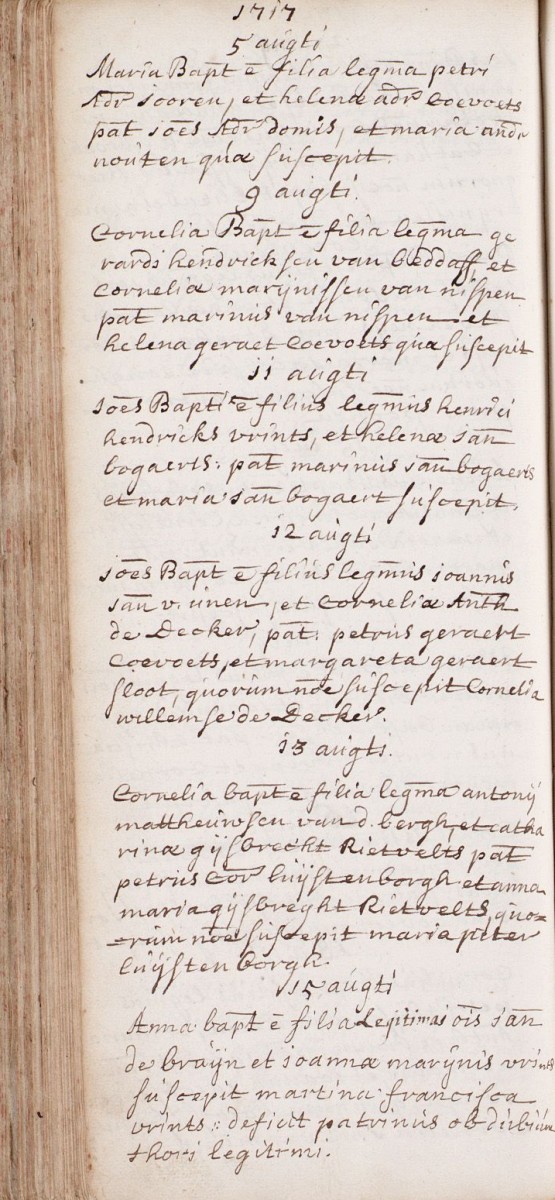 1717
5 augti
Maria Bap̄t ē filia legm̄a petri
Adr Jooren, et helena adr Coevoets
pat̄ joēs Adr domis, et maria andr
nouten quæ suscepit.
9 augti.
Cornelia Bap̄t ē filia legm̄a ge
rardi hendricksen van beddaff, et
Cornelia marijnissen van nispen
pat̄ marinus van nispen et
helena geraet Coevoets quæ suscepit
11 augti
Joēs Bap̄ti ē filius legm̄us henrici
hendricks vrints, et helena Jan
bogaerts: pat̄ marinus Jan bogaerts
et maria Jan bogaert suscepit.
12 augti
Joēs Bap̄t ē filius legm̄us joannis
Jan v. unen, et Cornelia Anth
de Decker, pat: petrus geraert
Coevoets, et margareta geraert
sloot, quorum noē suscepit Cornelia
willemse de Decker.
13 augti.
Cornelia bap̄t ē filia legm̄a antonij
mattheuwsen van d. bergh, et catha
rina gijsbrecht Rietvelts pat̄
petrus Cor luijstenborgh et anna
maria gijsbreght Rietvelts, quo=
=rum noē suscepit maria peter
luijstenborgh.
15 augti
Anna bap̄t ē filia legitima ōis Jan
de bruijn et joanna marijnis vrints
suscepit martina francisca
vrints :: deficit patrinus ob dubium
thori legitimi.